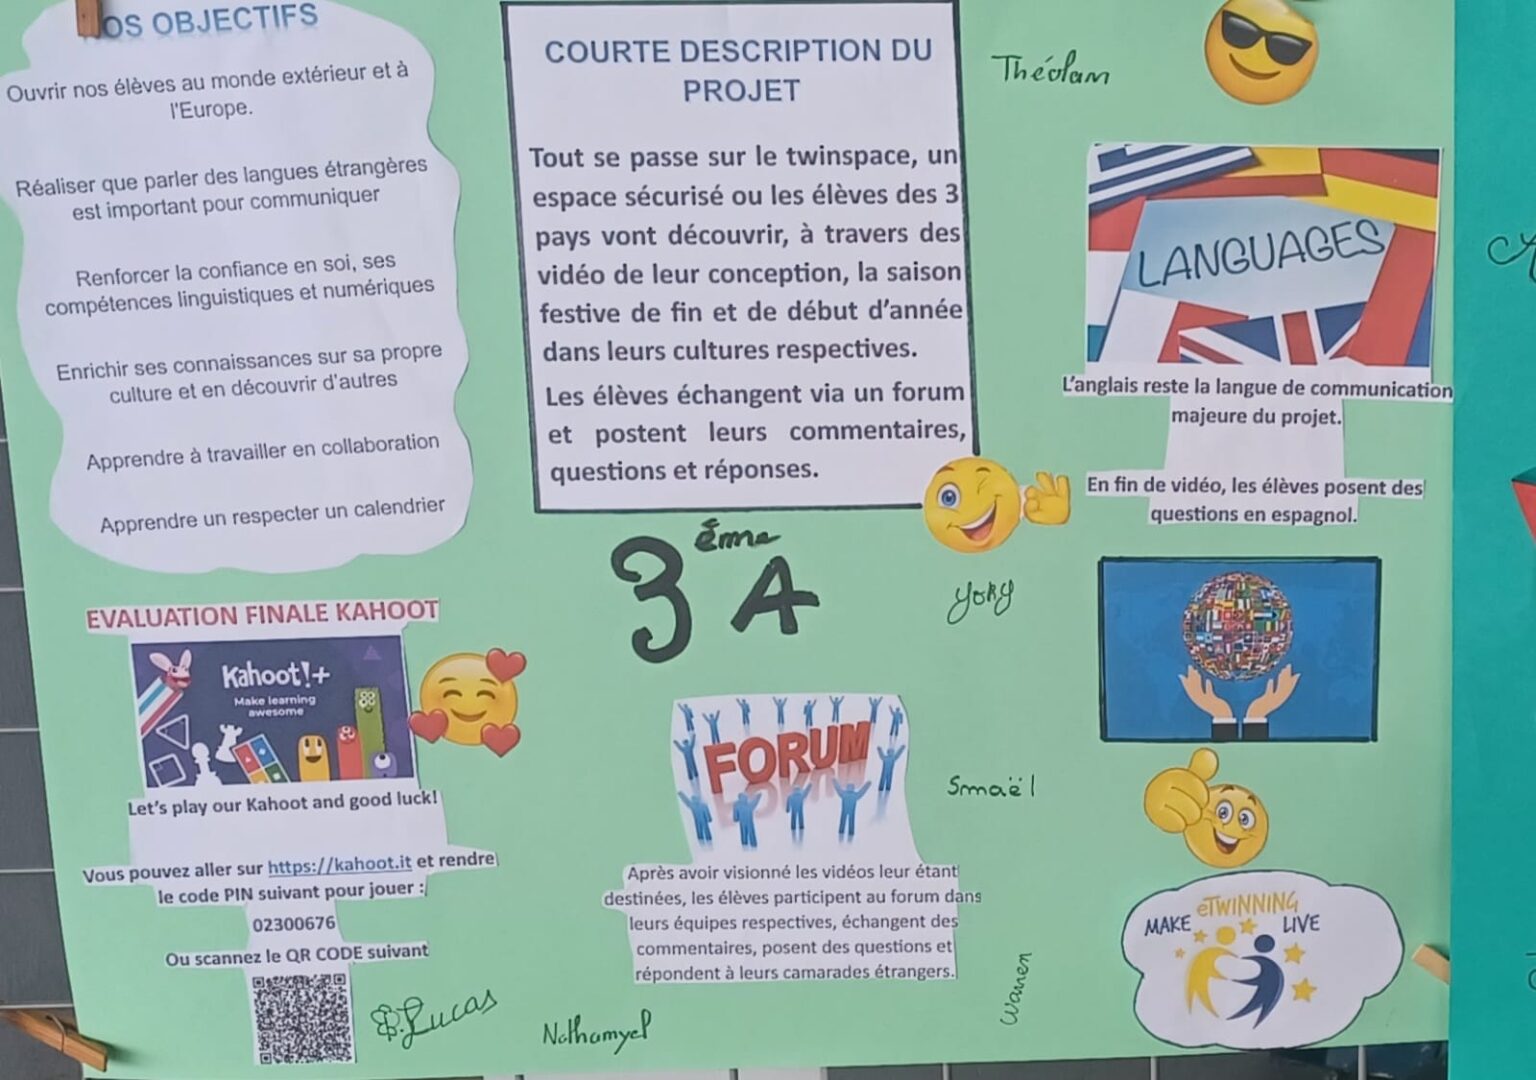 OS OBJECTIFS
Ouvrir nos élèves au monde extérieur et à
l'Europe.
Réaliser que parler des langues étrangères
est important pour communiquer
Renforcer la confiance en soi, ses
compétences linguistiques et numériques
Enrichir ses connaissances sur sa propre
culture et en découvrir d'autres
Apprendre à travailler en collaboration
Apprendre un respecter un calendrier
COURTE DESCRIPTION DU
PROJET
Tout se passe sur le twinspace, un
espace sécurisé ou les élèves des 3
pays vont découvrir, à travers des
vidéo de leur conception, la saison
festive de fin et de début d'année
dans leurs cultures respectives.
Les élèves échangent via un forum
et postent leurs commentaires,
questions et réponses.
Théolam
LANGUAGES
L'anglais reste la langue de communication
majeure du projet.
En fin de vidéo, les élèves posent des
questions en espagnol.
3ème A
Yoky
EVALUATION FINALE KAHOOT
Kahoot!+
Make learning
awesome
Let's play our Kahoot and good luck!
Vous pouvez aller sur https://kahoot.it et rendre
le code PIN suivant pour jouer :
02300676
Ou scannez le QR CODE suivant
Lucas
FORUM
Après avoir visionné les vidéos leur étant
destinées, les élèves participent au forum dans
leurs équipes respectives, échangent des
commentaires, posent des questions et
répondent à leurs camarades étrangers.
Nathamyel
Smaël
Warren
MAKE eTWINNING LIVE